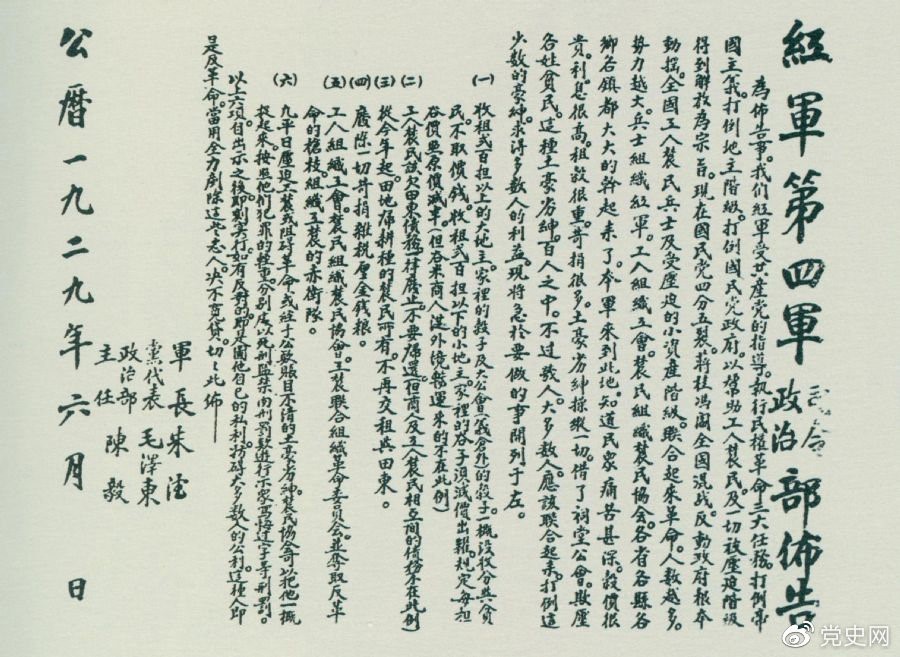 紅軍第四軍司令政治部佈告
為佈告事。我們紅軍受共產党的指導。執行民權革命三大任務。打倒帝
國主義。打倒地主階級。打倒國民党政府。以幫助工人農民及一切被壓迫階級
得到解放為宗旨。現在國民党四分五裂。蔣桂馮閻全國混战。反動政府根本
動搖。全國工人農民兵士及受壓迫的小資產階級。联合起來革命。人數越多。
勢力越大。兵士組織紅軍。工人組織工會。農民組織農民協会。各省各縣各
鄉各鎮都大大的幹起來了。本軍來到此地。知道民眾痛苦甚深。穀價很
貴。利息很高。租穀很重。苛捐很多。土豪劣紳操縱一切。借了祠堂公會。欺壓
各姓貧民。這種土豪劣紳。百人之中。不过數人。大多數人。應該联合起来。打倒這
少數的豪紳。求得多數人的利益。現將急於要做的事開列于左。
(一) 收租弍百担以上的大地主。家裡的穀子及大公會(義倉外)的穀子。一概沒收分與貧
民。不取價钱。收租弍百担以下的小地主。家裡的谷子須減價出糶。規定每担
谷價照原價減半。(但谷米商人從外境販運来的不在此例)
(二) 工人農民該欠田東債務。一律廢止。不要歸還。(但商人及工人農民相互間的債務不在此例)
(三) 從今年起。田地歸耕種的農民所有。不再交租與田東。
(四) 廢除一切苛捐雜税厘金錢粮。
(五) 工人組織工會。農民組織農民協會。工農联合組織革命委員会。並奪取反革
命的槍枝組織工農的赤衛隊。
(六) 凡平日壓迫工農或阻碍革命。或経手公欵賬目不清的土豪劣紳。農民協會可以把他一概
捉起來。按照他们犯罪的輕重。分别处以死刑監禁肉刑罰款遊行示家寫悔过字等刑罰。
以上六項自出示之後。即刻实行。如有反對的。即是圖他自已的私利。妨碍大多數人的公利。這種人即
是反革命。當用全力剷除這些恶人。决不寬貸。切切此佈
軍長 朱德
黨代表 毛澤東
政治部主任 陳毅
公曆一九二九年六月 日
党史网